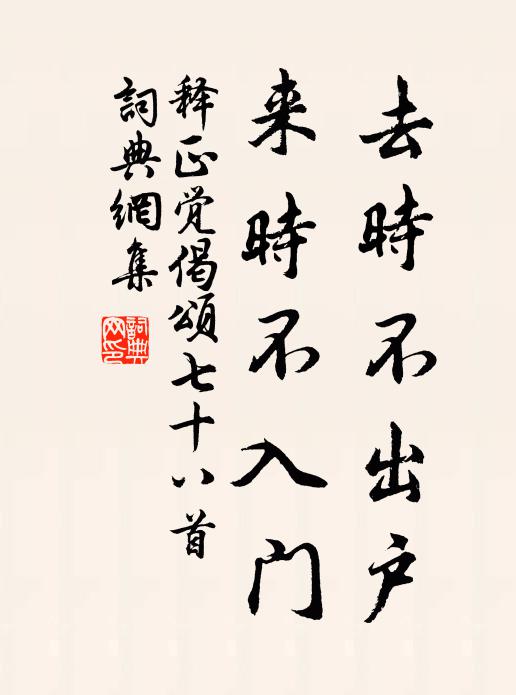 去時不出户
来時不入门
释正觉偈頌七十八首
詞典網集
詞典网印